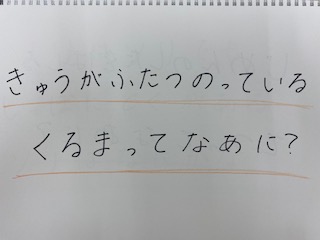 きゅうがふたつのっている
くるまってなあに?